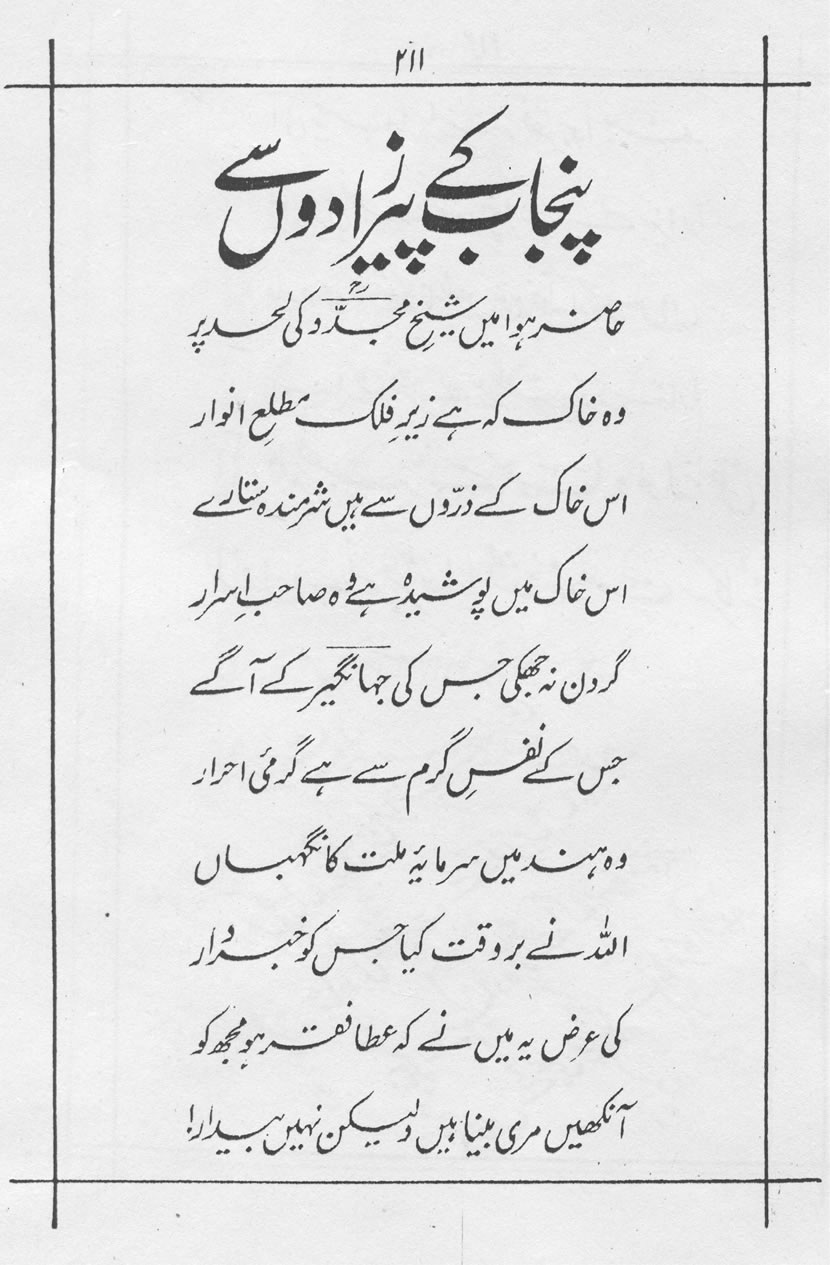 ۲۱۱
پنجاب کے پیرزادوں سے
حاضر ہوا میں شیخِ مجدّدؒ کی لحد پر
وہ خاک کہ ہے زیرِ فلک مطلعِ انوار
اس خاک کے ذرّوں سے ہیں شرمندہ ستارے
اس خاک میں پوشیدہ ہے وہ صاحبِ اسرار
گردن نہ جھکی جس کی جہانگیر کے آگے
جس کے نفسِ گرم سے ہے گرمیٔ احرار
وہ ہند میں سرمایۂ ملت کا نگہباں
اللہ نے بر وقت کیا جس کو خبردار
کی عرض یہ میں نے کہ عطا فقر ہو مجھ کو
آنکھیں مری بینا ہیں ولیکن نہیں بیدار!